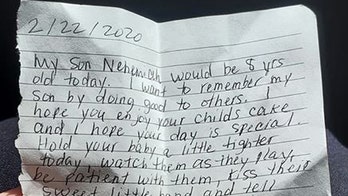 2/22/2020
My Son Nehemiah would be 8 yrs
old today. I want to remember my
son by doing good to others. I
hope you enjoy your childs cake
and I hope your day is special.
Hold your baby a little tighter
today, watch them as they play,
be patient with them, kiss their
sweet little and tell